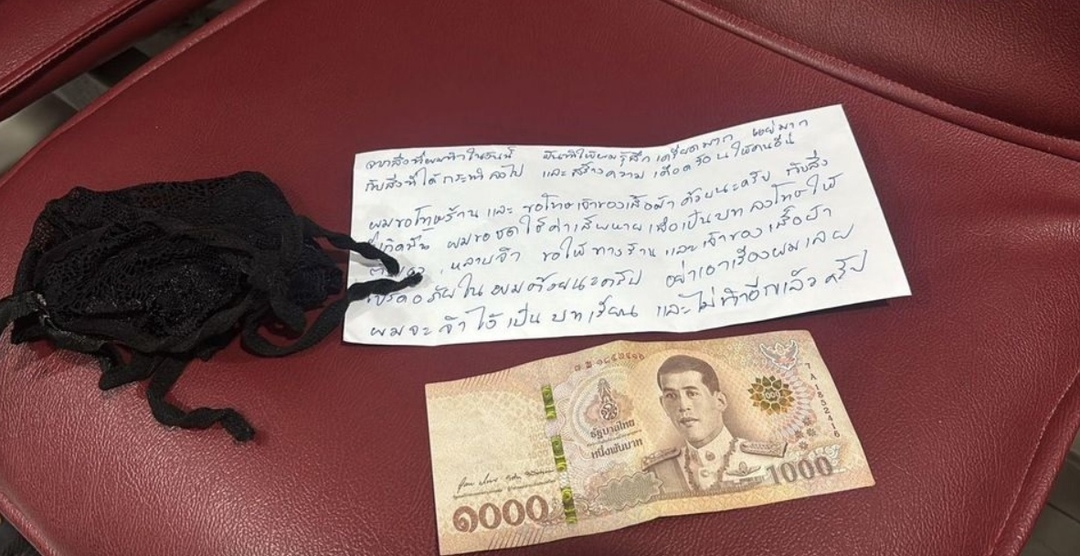 จากสิ่งที่ผมทำในวันนี้ มันทำให้ผมรู้สึก เครียดมาก แย่มาก
กับสิ่งที่ได้กระทำลงไป และสร้างความเดือดร้อนให้คนอื่น
ผมขอโทษร้าน และ ขอโทษเจ้าของเสื้อผ้า ด้วยนะครับ กับสิ่ง
ที่เกิดขึ้น ผมขอชดใช้ค่าเสียหาย เพื่อเป็นบทลงโทษให้
หลาบจำ ขอให้ทางร้าน และเจ้าของ เสื้อผ้า
โปรดอภัยใน ผมด้วยนะครับ อย่าเอาเรื่องผมเลย
ผมจะจำไว้เป็น บทเรียน และไม่ทำอีกแล้ว ครับ
รัฐบาลไทย
หนึ่งพันบาท
๑๐๐๐
1000